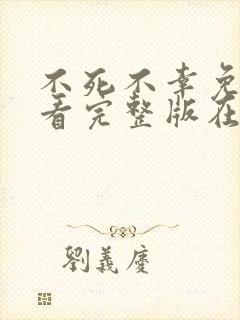 不死不幸免
看完整版在
劉義慶